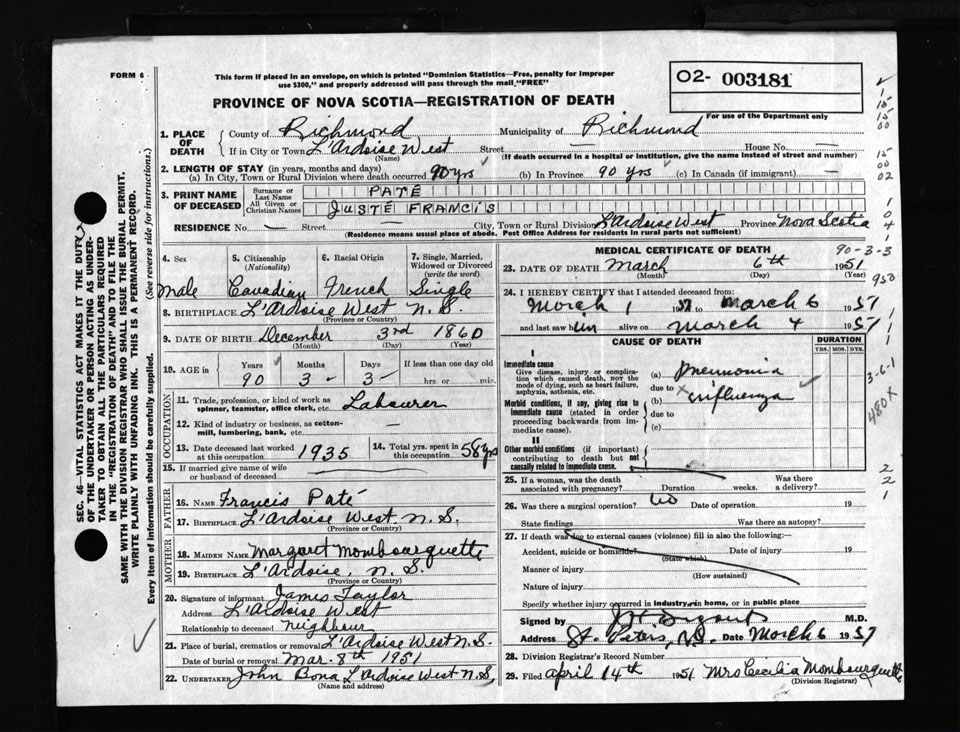 FORM 6
This form if placed in an envelope, on which is printed "Dominion Statistics—Free, penalty for improper
use $300," and properly addressed will pass through the mail "FREE"
O2- 003181
For use of the Department only
PROVINCE OF NOVA SCOTIA—REGISTRATION OF DEATH
1. PLACE OF DEATH
County of Richmond Municipality of Richmond
If in City or Town L'Ardoise West Street — House No. —
(Name) (If death occurred in a hospital or institution, give the name instead of street and number)
2. LENGTH OF STAY (in years, months and days)
(a) In City, Town or Rural Division where death occurred 90 yrs (b) In Province 90 yrs (c) In Canada (if immigrant) —
3. PRINT NAME OF DECEASED
Surname or Last Name PATÉ
All Given or Christian Names JUSTE FRANCIS
RESIDENCE No. — Street — City, Town or Rural Division L'Ardoise West Province Nova Scotia
(Residence means usual place of abode. Post Office Address for residents in rural parts not sufficient)
4. Sex 5. Citizenship (Nationality) 6. Racial Origin 7. Single, Married, Widowed or Divorced (write the word)
Male Canadian French Single
8. BIRTHPLACE L'Ardoise West N.S.
(Province or Country)
9. DATE OF BIRTH December 3rd 1860
(Month) (Day) (Year)
10. AGE in Years Months Days If less than one day old
90 3 3 hrs. or min.
OCCUPATION
11. Trade, profession, or kind of work as spinner, teamster, office clerk, etc. Labourer
12. Kind of industry or business, as cotton-mill, lumbering, bank, etc. —
13. Date deceased last worked at this occupation 1935 14. Total yrs. spent in this occupation 58 yrs
15. If married give name of wife or husband of deceased
FATHER
16. Name Francis Paté
17. Birthplace L'Ardoise West N.S.
(Province or Country)
MOTHER
18. Maiden Name Margaret Mombourquette
19. Birthplace L'Ardoise, N.S.
(Province or Country)
20. Signature of informant James Taylor
Address L'Ardoise West
Relationship to deceased neighbour
21. Place of burial, cremation or removal L'Ardoise West N.S.
Date of burial or removal Mar. 8th 1951
22. UNDERTAKER John Bona L'Ardoise West N.S.
(Name and address)
MEDICAL CERTIFICATE OF DEATH
90-3-3
23. DATE OF DEATH March 6th 1951
(Month) (Day) (Year)
24. I HEREBY CERTIFY that I attended deceased from:
March 1 1951 to March 6 1951
and last saw him alive on March 4 1951
CAUSE OF DEATH DURATION
YRS. MOS. DYS.
I
Immediate cause
Give disease, injury or complication which caused death, NOT the mode of dying, such as heart failure, asphyxia, asthenia, etc.
(a) Pneumonia
due to
(b) influenza
Morbid conditions, if any, giving rise to immediate cause (stated in order proceeding backwards from immediate cause).
due to
(c)
II
Other morbid conditions (if important) contributing to death but not causally related to immediate cause.
25. If a woman, was the death associated with pregnancy? Duration weeks. Was there a delivery?
26. Was there a surgical operation? No Date of operation 19
State findings Was there an autopsy?
27. If death was due to external causes (violence) fill in also the following:—
Accident, suicide or homicide? Date of injury 19
(State which)
Manner of injury
(How sustained)
Nature of injury
Specify whether injury occurred in industry, in home, or in public place
Signed by M.D.
Address St. Peters, N.S. Date March 6 1951
28. Division Registrar's Record Number
29. Filed April 14th 1951 Mrs Cecilia Mombourquette
(Division Registrar)
SEC. 46—VITAL STATISTICS ACT MAKES IT THE DUTY
OF THE UNDERTAKER OR PERSON ACTING AS UNDER-
TAKER TO OBTAIN ALL THE PARTICULARS REQUIRED
IN THE "REGISTRATION OF DEATH" AND TO FILE THE
SAME WITH THE DIVISION REGISTRAR WHO SHALL ISSUE THE BURIAL PERMIT.
WRITE PLAINLY WITH UNFADING INK. THIS IS A PERMANENT RECORD.
Every item of information should be carefully supplied. (See reverse side for instructions.)
3-6-1
480x